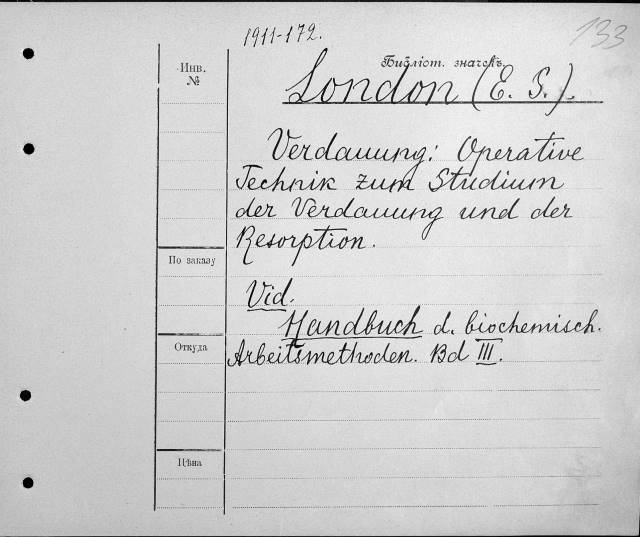 1911-172.
133
Инв.
№
Библіот. значекъ.
London (E. S.).
Verdauung: Operative
Technik zum Studium
der Verdauung und der
Resorption.
По заказу
Vid.
Handbuch d. biochemisch.
Откуда
Arbeitsmethoden. Bd III.
Цѣна